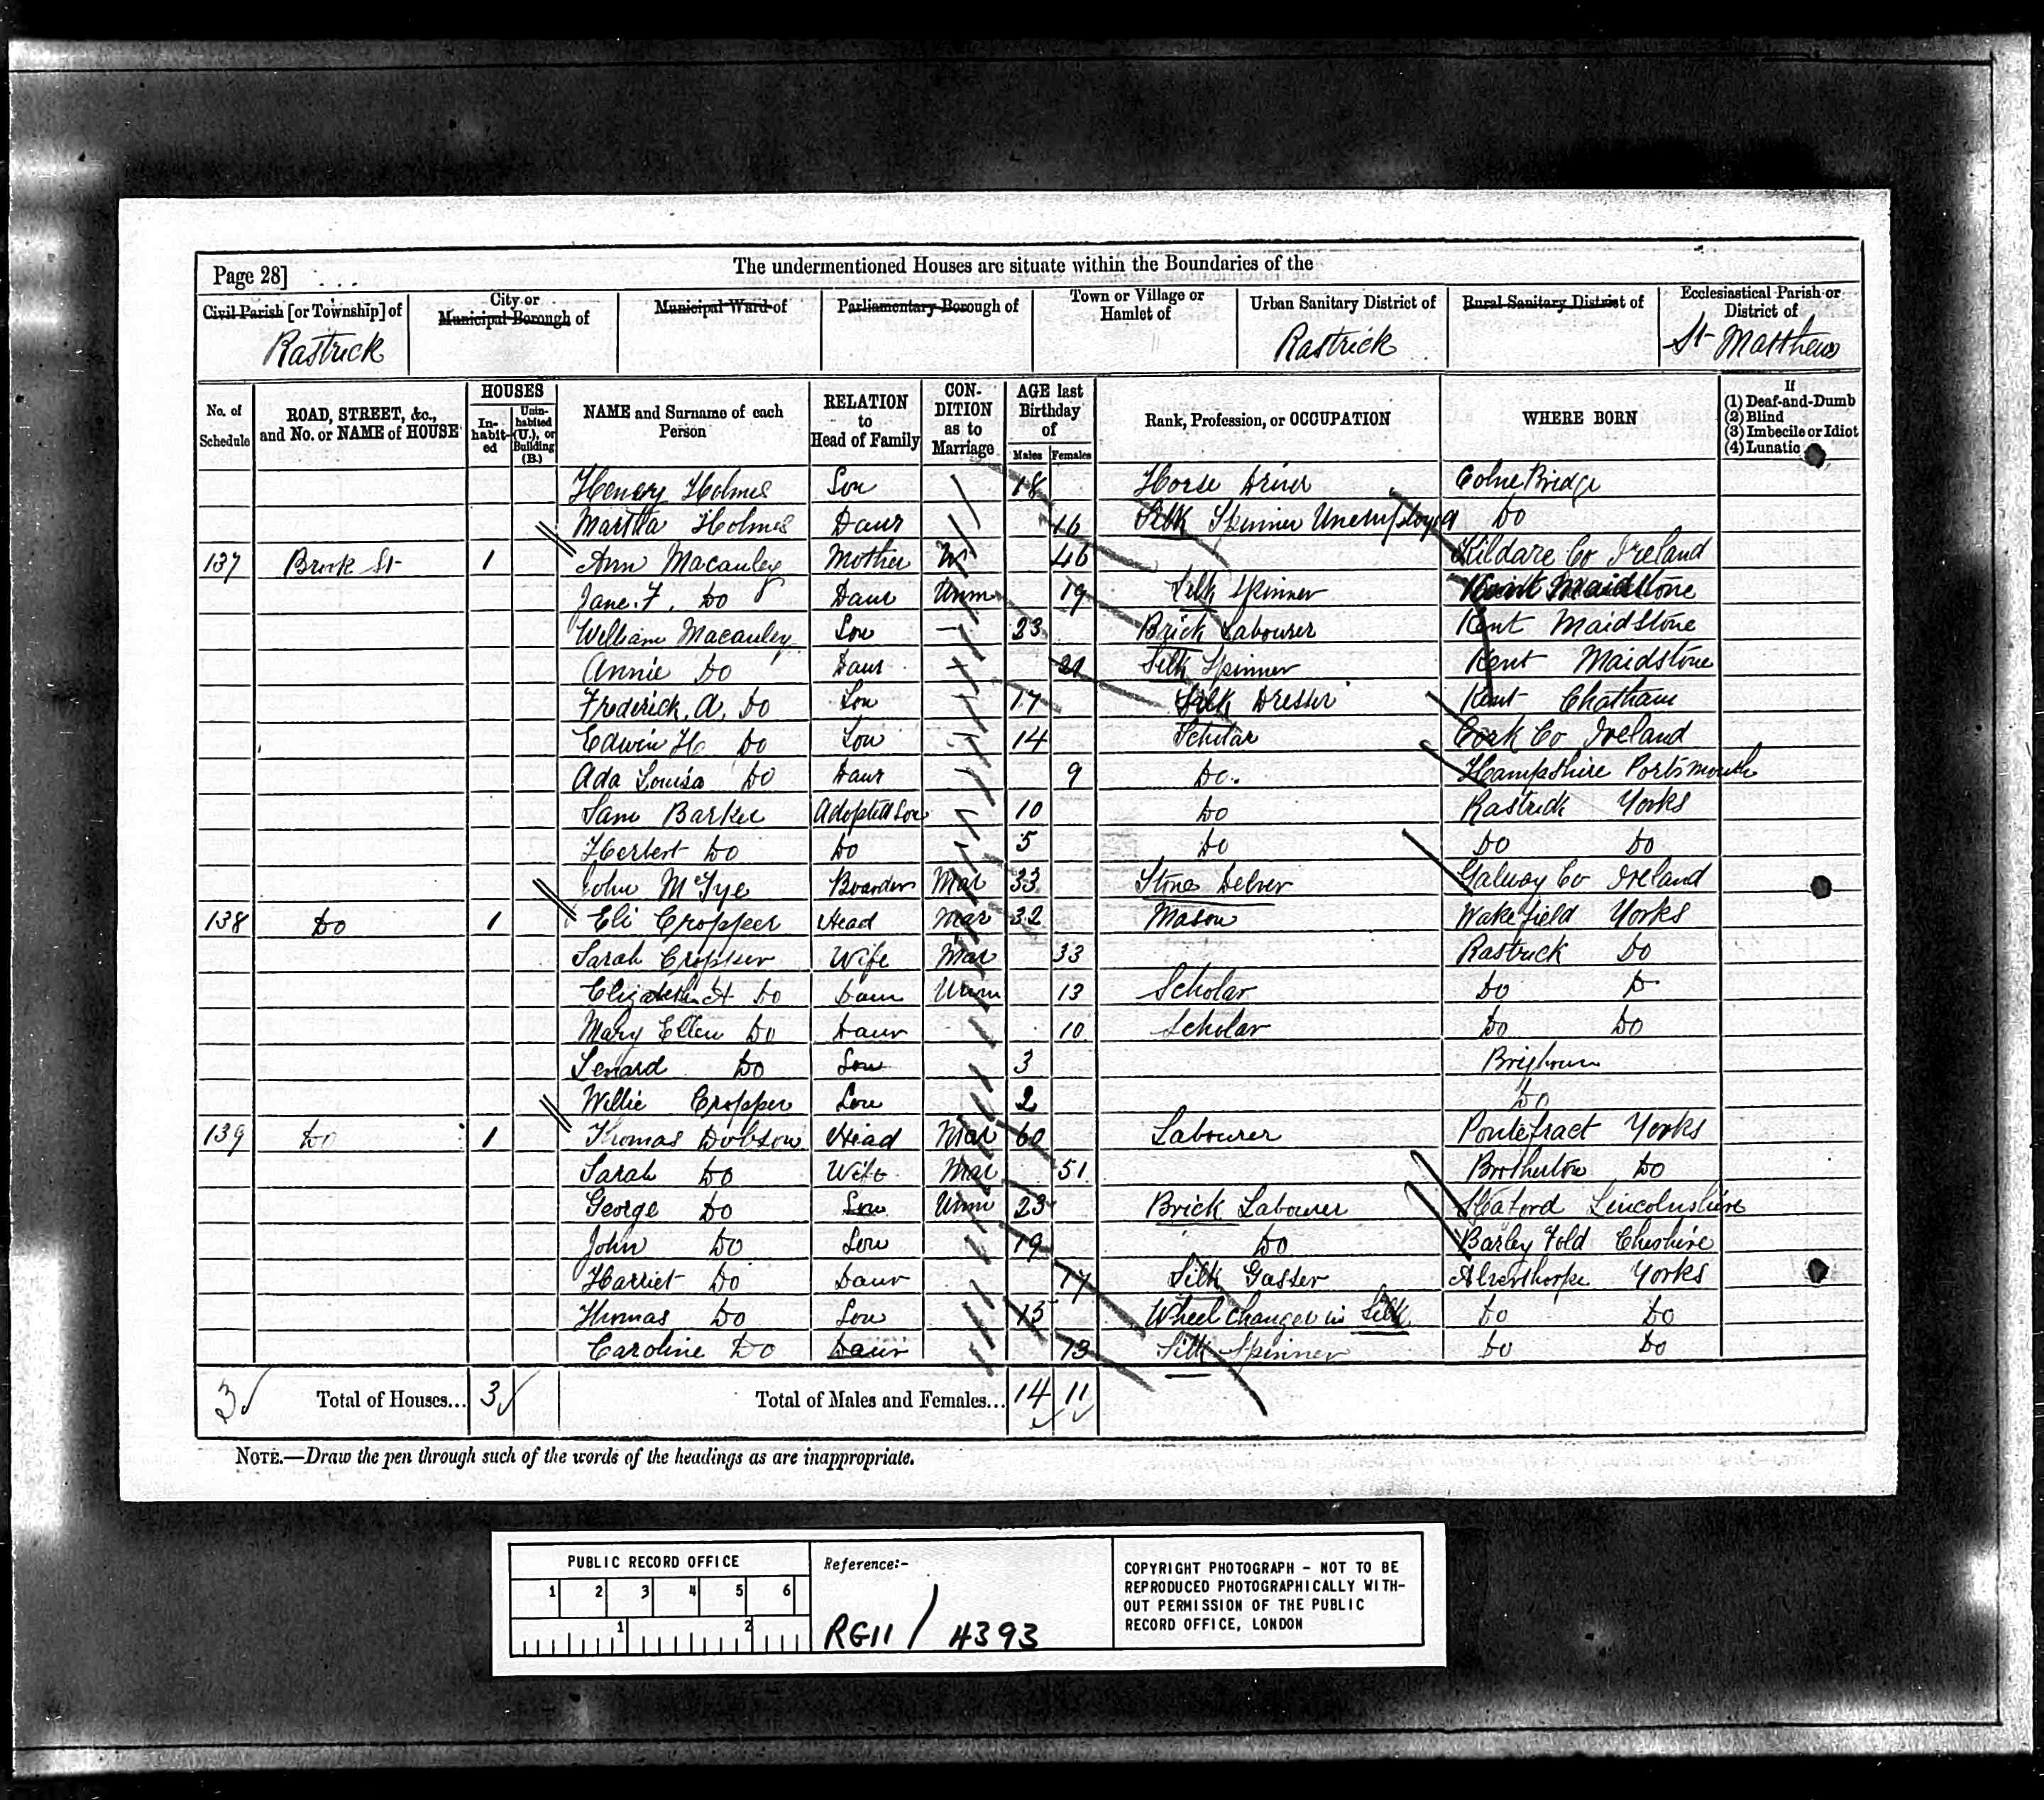 Page 28]
The undermentioned Houses are situate within the Boundaries of the
Civil Parish [or Township] of
City or Municipal Borough of
Municipal Ward of
Parliamentary Borough of
Town or Village or Hamlet of
Urban Sanitary District of
Rural Sanitary District of
Ecclesiastical Parish or District of
Rastrick
Rastrick
St Matthew
No. of Schedule
ROAD, STREET, &c., and No. or NAME of HOUSE
HOUSES
In-habit-ed
Unin-habited (U.), or Building (B.)
NAME and Surname of each Person
RELATION to Head of Family
CON-DITION as to Marriage
AGE last Birthday of
Males Females
Rank, Profession, or OCCUPATION
WHERE BORN
If
(1) Deaf-and-Dumb
(2) Blind
(3) Imbecile or Idiot
(4) Lunatic
Henry Holmes Son 18 Horse Driver Colne Bridge
Martha Holmes Daur 16 Silk Spinner Unemployed Do
137 Brook St 1 Ann Macauley Mother 46 Kildare Co Ireland
Jane. F. Do Daur Unm 19 Silk Spinner Kent Maidstone
William Macauley Son 23 Brick Labourer Kent Maidstone
Annie Do Daur 21 Silk Spinner Kent Maidstone
Frederick. A. Do Son 17 Silk Dresser Kent Chatham
Edwin H Do Son 14 Scholar Cork Co Ireland
Ada Louisa Do Daur 9 Do. Hampshire Portsmouth
Sam Barker Adopted Son 10 Do Rastrick Yorks
Herbert Do Do 5 Do Do Do
John Boarder Mar 33 Stone Delver Galway Co Ireland
138 Do 1 Eli Cropper Head Mar 32 Mason Wakefield Yorks
Sarah Cropper Wife Mar 33 Rastrick Do
Elizabeth A Do Daur Unm 13 Scholar Do Do
Mary Ellen Do Daur 10 Scholar Do Do
Lenard Do Son 3
Willie Cropper Son 2 Do
139 Do 1 Thomas Dobson Head Mar 60 Labourer Pontefract Yorks
Sarah Do Wife Mar 51 Brotherton Do
George Do Son Unm 23 Brick Labourer Lincolnshire
John Do Son 19 Do Barley Fold Cheshire
Harriet Do Daur 17 Silk Gasser Alverthorpe Yorks
Thomas Do Son 15 Wheel changer in Silk Do Do
Caroline Do Daur 13 Silk Spinner Do Do
3 Total of Houses... 3 Total of Males and Females... 14 11
NOTE.—Draw the pen through such of the words of the headings as are inappropriate.
PUBLIC RECORD OFFICE
1 2 3 4 5 6
1 2
Reference:-
RG11 / 4393
COPYRIGHT PHOTOGRAPH - NOT TO BE
REPRODUCED PHOTOGRAPHICALLY WITH-
OUT PERMISSION OF THE PUBLIC
RECORD OFFICE, LONDON